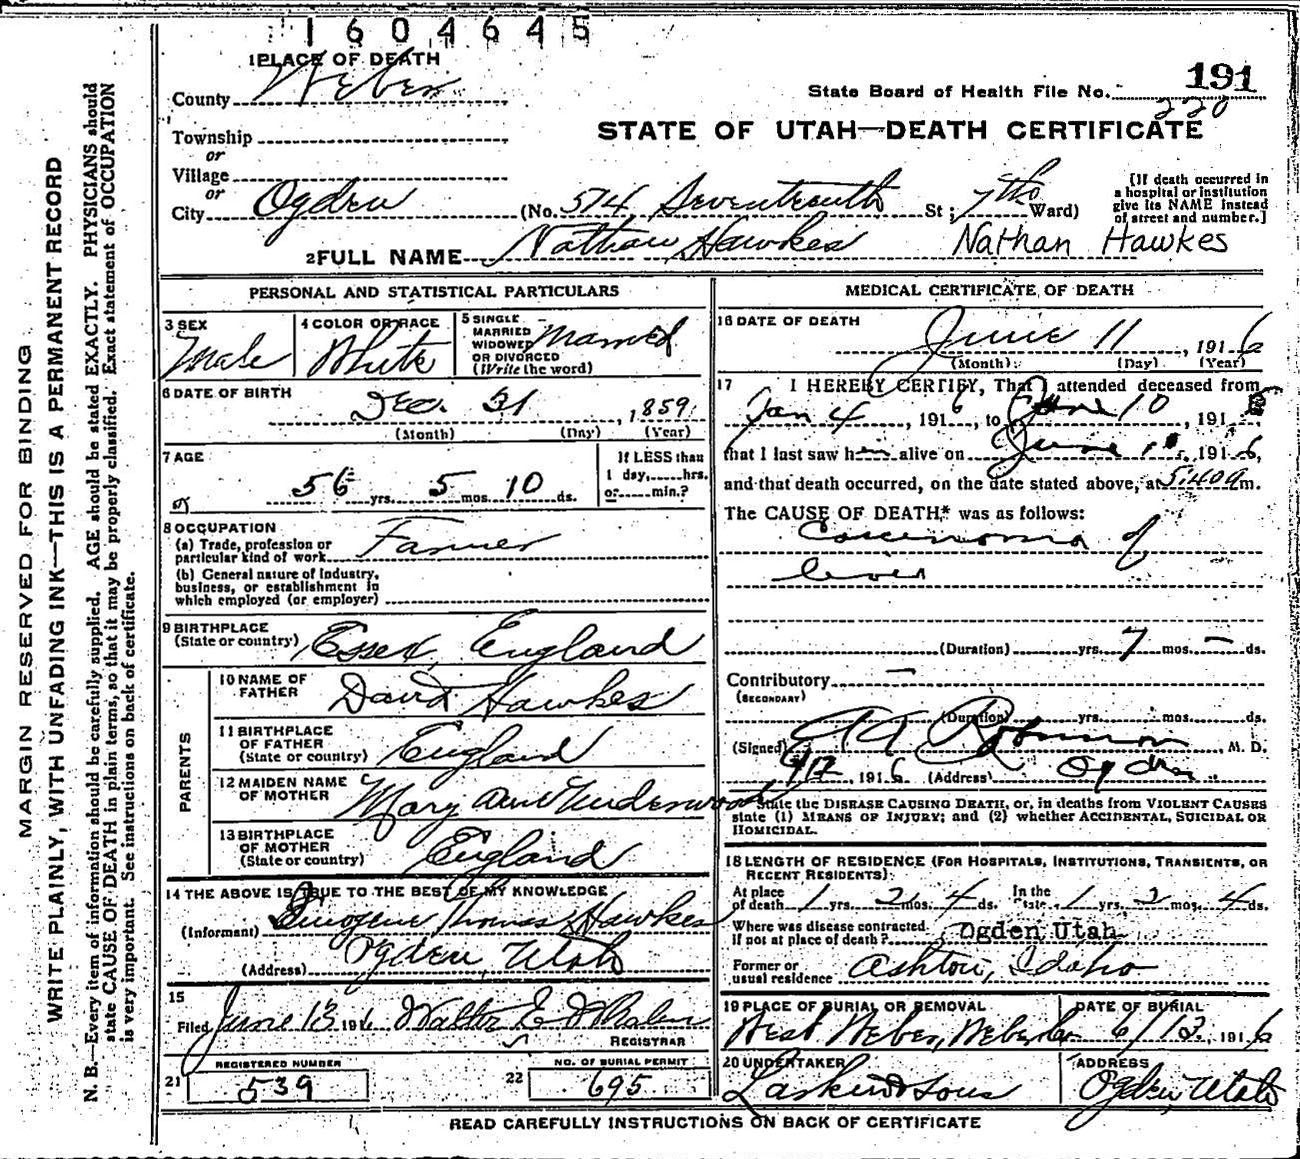 1604645
1 PLACE OF DEATH
County Weber
State Board of Health File No. 191
220
Township
or
STATE OF UTAH—DEATH CERTIFICATE
Village
or
City Ogden (No. 574 Seventeenth St; 7th Ward)
[If death occurred in
a hospital or institution
give its NAME instead
of street and number.]
2 FULL NAME Nathan Hawkes Nathan Hawkes
PERSONAL AND STATISTICAL PARTICULARS
3 SEX
Male
4 COLOR OR RACE
White
5 SINGLE
MARRIED
WIDOWED
OR DIVORCED
(Write the word)
Married
6 DATE OF BIRTH
Dec. 31, 1859
(Month) (Day) (Year)
7 AGE
56 yrs. 5 mos. 10 ds.
If LESS than
1 day, hrs.
or min.?
8 OCCUPATION
(a) Trade, profession or
particular kind of work Farmer
(b) General nature of Industry,
business, or establishment in
which employed (or employer)
9 BIRTHPLACE
(State or country) Essex, England
PARENTS
10 NAME OF
FATHER David Hawkes
11 BIRTHPLACE
OF FATHER
(State or country) England
12 MAIDEN NAME
OF MOTHER Mary Ann Underwood
13 BIRTHPLACE
OF MOTHER
(State or country) England
14 THE ABOVE IS TRUE TO THE BEST OF MY KNOWLEDGE
(Informant) Thomas Hawkes
(Address) Ogden, Utah
15
Filed June 13 1916 Walter E. Whalen
REGISTRAR
REGISTERED NUMBER
21 539
NO. OF BURIAL PERMIT
22 695
MEDICAL CERTIFICATE OF DEATH
16 DATE OF DEATH
June 11, 1916
(Month) (Day) (Year)
17 I HEREBY CERTIFY, That I attended deceased from
Jan 4, 1916, to June 10, 191
that I last saw him alive on June 1916,
and that death occurred, on the date stated above, at 5:40 a m.
The CAUSE OF DEATH* was as follows:
Carcinoma of
liver
(Duration) yrs. 7 mos. — ds.
Contributory —
(SECONDARY)
(Duration) yrs. mos. ds.
(Signed) Robinson, M. D.
6/12, 1916 (Address) Ogden
State the DISEASE CAUSING DEATH, or, in deaths from VIOLENT CAUSES
state (1) MEANS OF INJURY; and (2) whether ACCIDENTAL, SUICIDAL OR
HOMICIDAL.
18 LENGTH OF RESIDENCE (FOR HOSPITALS, INSTITUTIONS, TRANSIENTS, OR
RECENT RESIDENTS):
At place
of death 1 yrs. 2 mos. 4 ds. In the
State 1 yrs. 2 mos. 4 ds.
Where was disease contracted,
If not at place of death? Ogden Utah
Former or
usual residence Ashton, Idaho
19 PLACE OF BURIAL OR REMOVAL
West Weber, Weber Co
DATE OF BURIAL
6/13, 1916
20 UNDERTAKER
Larkin & Sons
ADDRESS
Ogden, Utah
READ CAREFULLY INSTRUCTIONS ON BACK OF CERTIFICATE
MARGIN RESERVED FOR BINDING
WRITE PLAINLY, WITH UNFADING INK—THIS IS A PERMANENT RECORD
N. B.—Every item of information should be carefully supplied. AGE should be stated EXACTLY. PHYSICIANS should
state CAUSE OF DEATH in plain terms, so that it may be properly classified. Exact statement of OCCUPATION
is very important. See instructions on back of certificate.